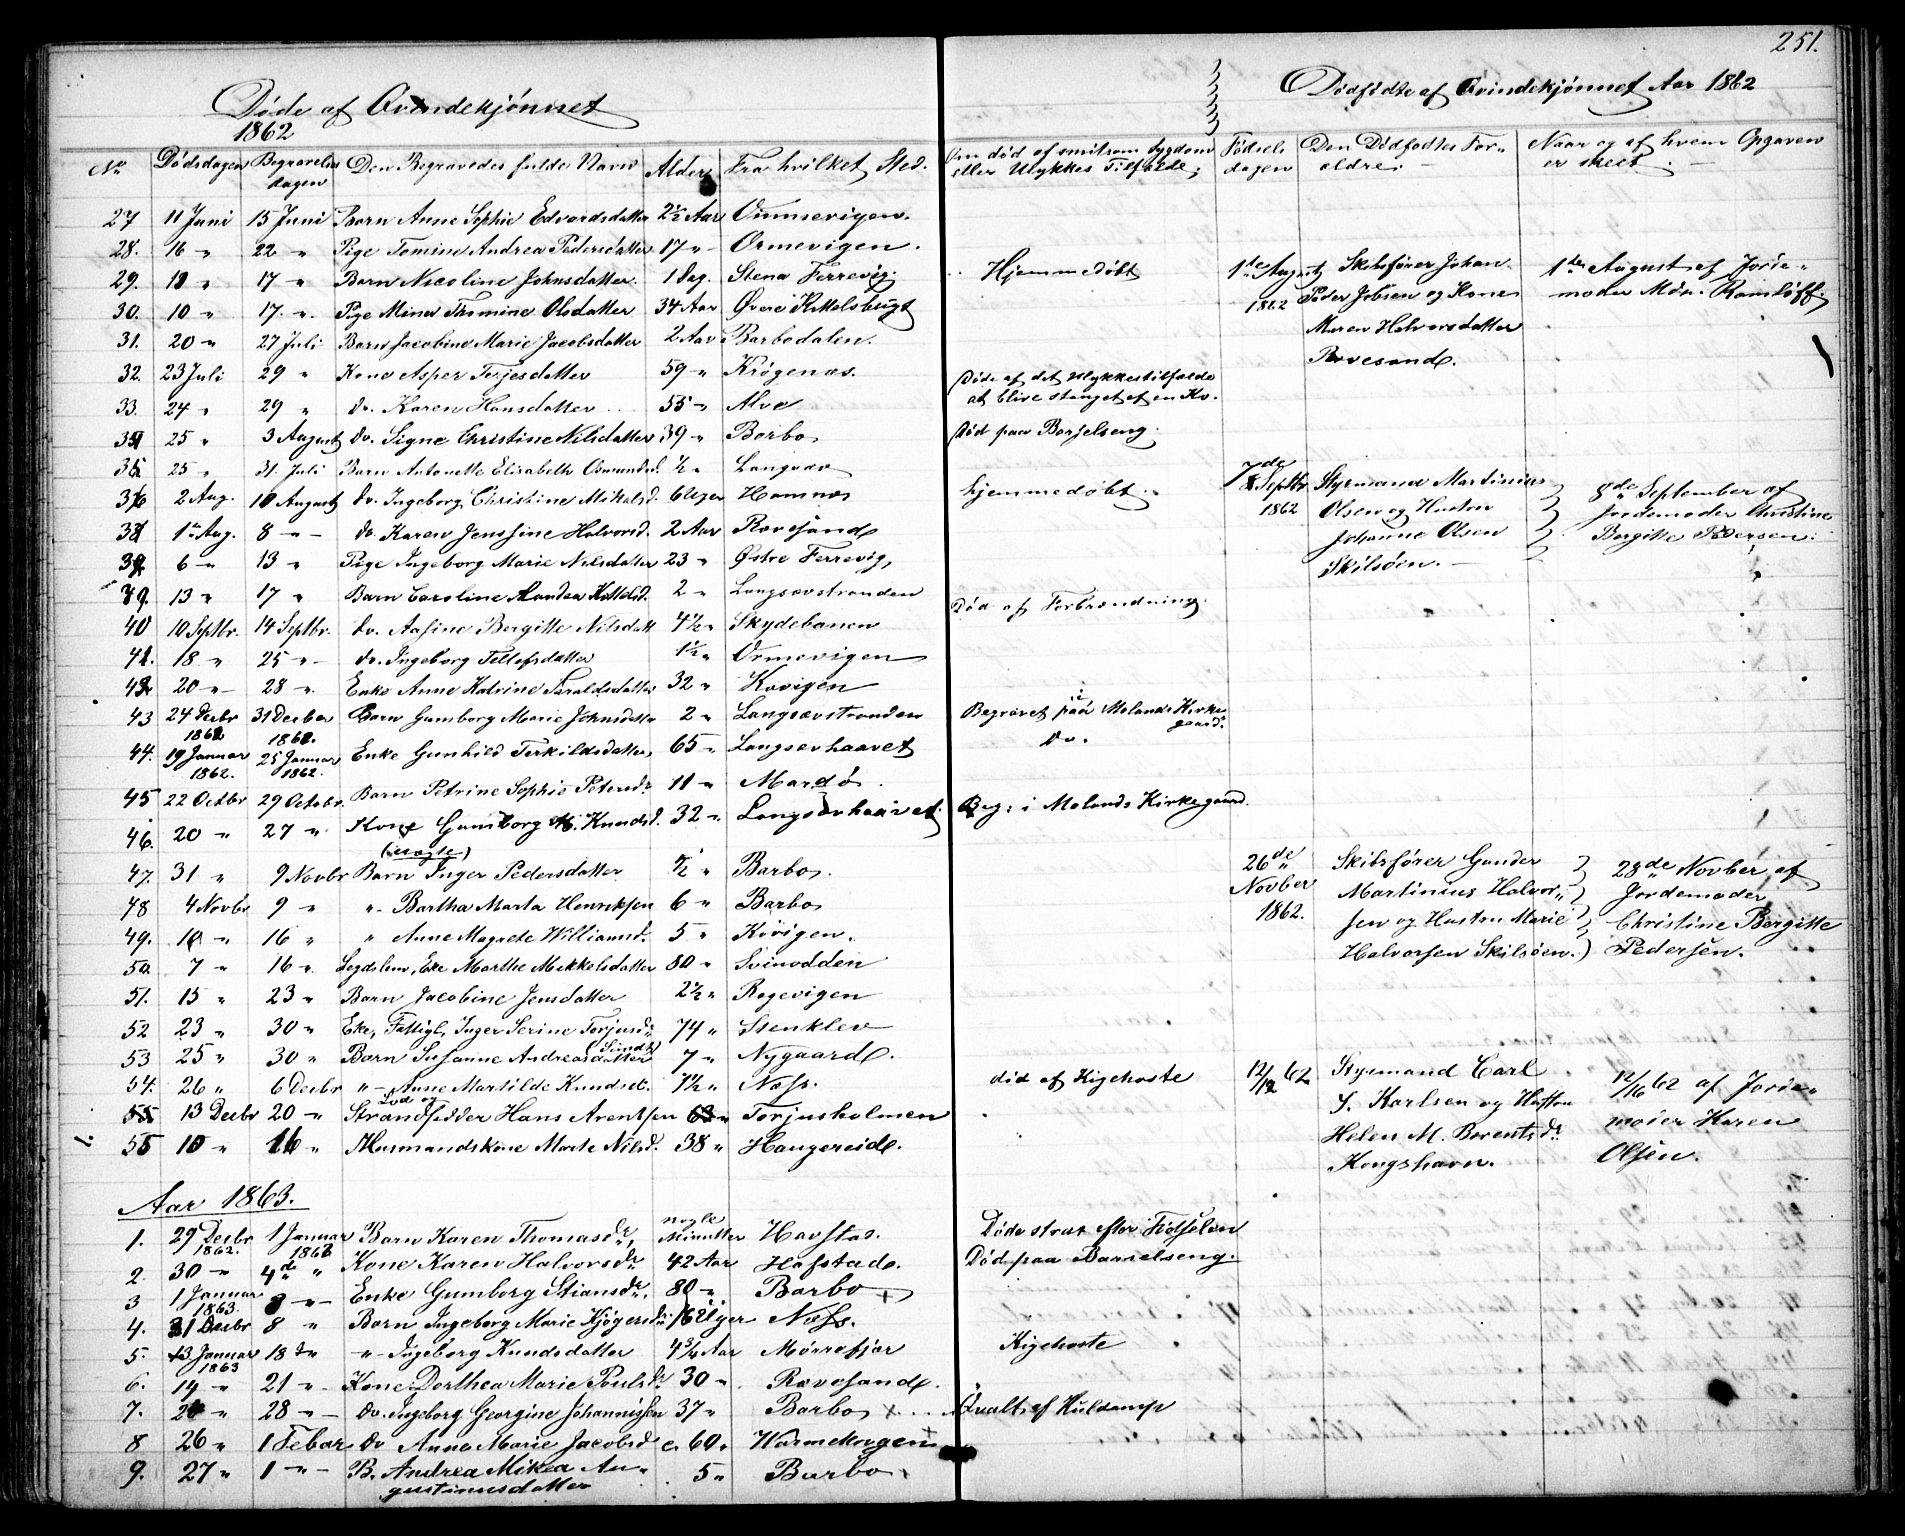 251.
Døde af Qvindekjønnet
1862
No Dødsdagen Begravelsesdagen Den Begravedes fulde Navn Alder Fra hvilket Sted.
27 11 Juni 15 Juni Barn Anne Sophie Edvardsdatter 2½ Aar
28. 16 " 22 " Pige Tomine Andrea Pedersdatter 17 " Ormevigen.
29. 11 " 17 " Barn Nicoline Johnsdatter. 1 Dag. Stena Ferrevig.
30. 10 " 17. " Pige Mina Tomine Olsdatter 34 Aar Øvre Kittelsbugt
31. 20 " 27 Juli Barn Jacobine Marie Jacobsdatter 2 Aar Barbodalen.
32. 23 Juli 29 " Kone Asper Terjesdatter 59 " Krøgenæs.
33. 24 " 29 " do. Karen Hansdatter 55 " Alve
34 25 " 3 August do. Signe Christine Nilsdatter 39 " Barbo
35 25 " 31. Juli Barn Antonette Elisabeth ½ " Langsæv
36 2 Aug. 10 August do. Ingeborg Christine Mikalsd. 6 Uger Havnnæs
37 1ste Aug. 8 " do. Karen Jensine Halvorsd. 2 Aar Rævesand
38 6 " 13 " Pige Ingeborg Marie Nilsdatter 23 " Østre Ferrevig,
39. 13 " 17 " Barn Caroline Andrea Kittelsd. 2 " Langsævstranden
40 10 Septbr. 14 Septbr. do. Aasine Bergitte Nilsdatt 4½ " Skydebanen
41. 18 " 25 " do. Ingeborg Tellefsdatter 1½ " Ormevigen
42 20 " 28 " Enke Anne Katrine Taraldsdatter 32 " Kovigen
43 24 Decbr 1861 31 Decber 1861. Barn Gunborg Marie Johnsdatter 2 " Langsævstranden
44. 19 Januar 1862. 25 Januar 1862. Enke Gunhild Terkildsdatter, 65 " Langsævhaavet
45 22 Octbr 29 Octobr. Barn Petrine Sophie Petersdr 11 " Mardø
46. 20 " 27 " Kone Gunborg Knudsd. 32 " Langsævhaavet
47. 31 " 9 Novbr Barn Inger Pedersdatter ½ " Barbo.
48 4 Novbr 9 " " Bertha Marta Henriksen 6 " Barbo
49. 10 " 16 " " Anne Magrete Williamsd. 5 " Kovigen.
50. 7 " 16 " Lægdslem, Eke Marthe Mikkelsdatter 80 " Svinodden
51. 15 " 23 " Barn Jacobine Jensdatter 2½ " Rægevigen
52 23 " 30 " Eke, Fattigl. Inger Serine Torjusdr 74 " Stenklev
53 25 " 30 " Barn Susanne Andreasdatter 7 " Nygaard.
54. 26 " 6 Decbr " Anne Martilde Knudsdr. 1½ " Næss.
55 13 Decbr 20 " Lod og Strandsidder Hans Arentsen 63 " Torjusholmen
55 10 " 16 " Husmandskone Marte Nilsd. 38 " Haugereid.
Aar 1863.
1. 29 Decbr 1862. 1 Januar 1863 Barn Karen Thomasdr, nogle Minutter Havstad.
2. 30 " 4de " Kone Karen Halvorsdr 42 Aar Hafstad.
3 1 Januar 1863. 8 " Enke Gunborg Stiansdr. 80 " Barbo
4. 31 Decbr 8 " Barn Ingeborg Marie Kjøgersdr 16 Uger Næss.
5. 13 Januar 1863 18 " " Ingeborg Knudsdatter 4¾ Aar Mørrefjær
6. 14 " 21 " Kone Dorthea Marie Poulsdr 30 " Rævesand.
7. 20 " 28 " do. Ingeborg Georgine Johannissen 37 " Barbo
8 26 " 1 Febar do Anne Marie Jacobsd c. 60 "
9. 27 " 1 " B. Andrea Mikea Augustinusdatter 5 " Barbo
Dødfødte af Qvindekjønnet Aar 1862
Om død af smitsom Sygdom eller Ulykkes Tilfælde, Fødselsdagen Den Dødfødtes Forældre. Naar og af hvem Opgaven er skeet.
Hjemmedøbt
1ste August 1862
Skibsfører Johan
Peder Jobsen og Kone
Maren Halvorsdatter
Rævesand.
1ste August af Jordemoder Mdm. Romløff.
Døde af det Ulykkestilfælde
at blive stanget af en Ko.
Død paa Barselseng.
hjemmedøbt.
7de Septbr 1862
Styrmand Martinius
Olsen og Hustru
Johanne Olsen
Skilsøen.
8de September af
Jordemoder Christine
Bergitte Pedersen.
Død af Forbrænding.
Begravet paa Molands Kirkegaard.
do.
Beg: i Molands Kirkegaard.
26de Novber 1862.
Skibsfører Gunder
Martinius Halvorsen og Hustru Marie
Halvorsen Skilsøen.
28de Novber af
Jordemoder
Christine Bergitte
Pedersen.
død af Kighoste
12/12 62
Styrmand Carl
S. Karlsen og Hustru
Helen M. Berentsdr
Kongshavn.
12/16 62 af Jordemoder Karen
Olsen.
Døde strax efter Fødselen
Død paa Barselseng.
Kighoste
Qvalt af Kuldamp